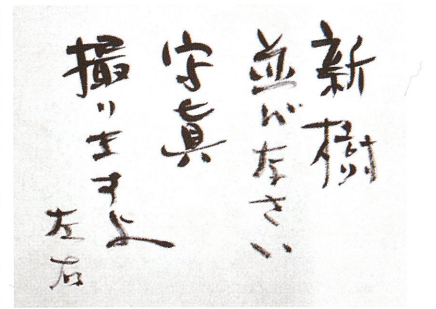 新樹
並びなさい
写真
撮りますよ
左右